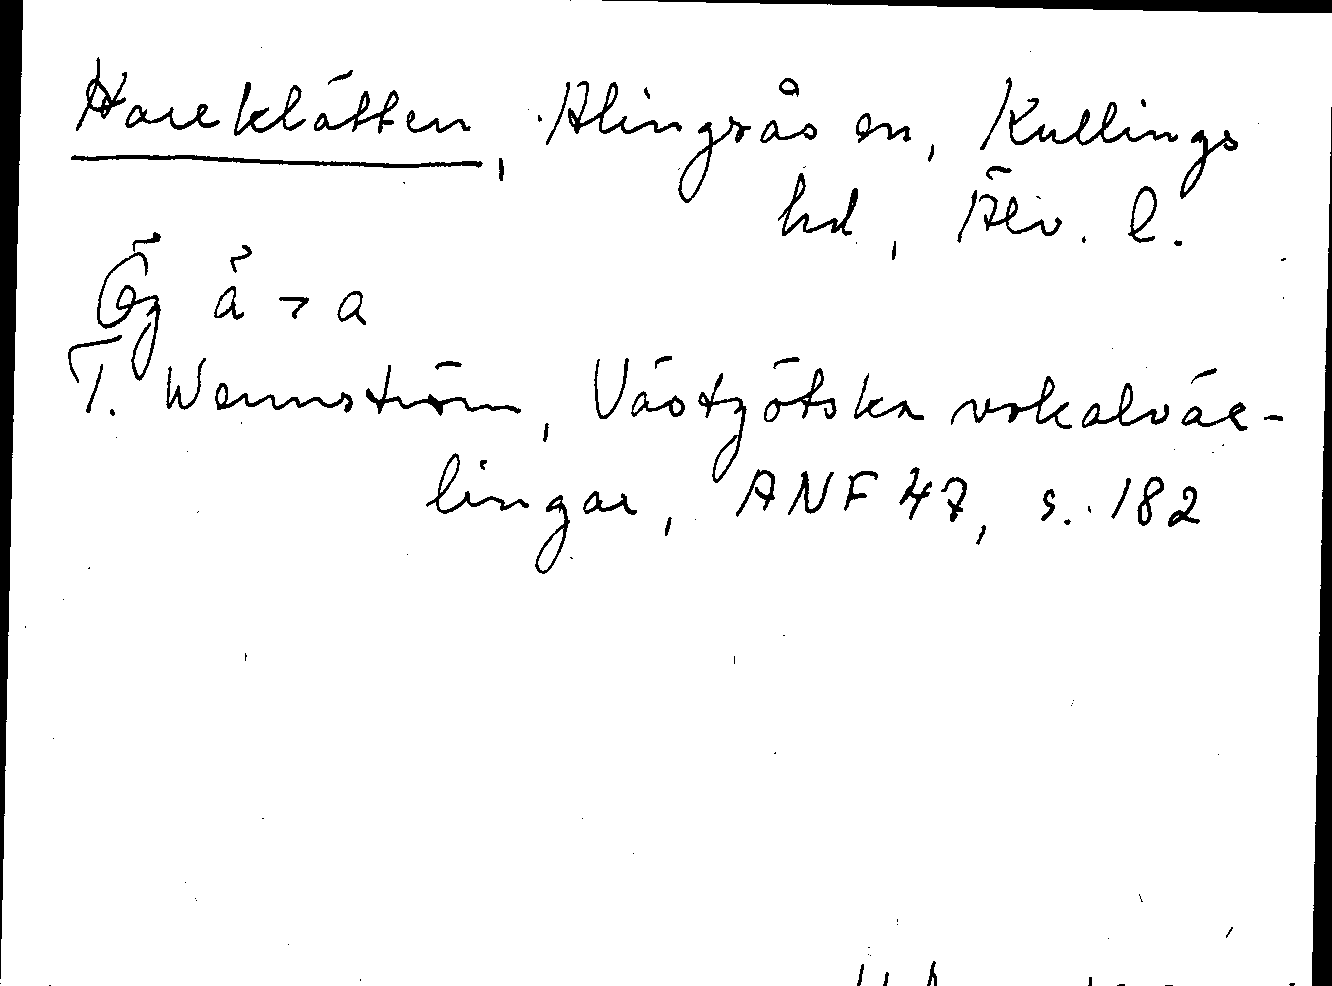 Hareklätten, Alingsås sn, Kullings
hd, Älv. l.
Ög ä > a
T. Wennström, Västgötska vokalväx-
lingar, ANF 47, s. 182